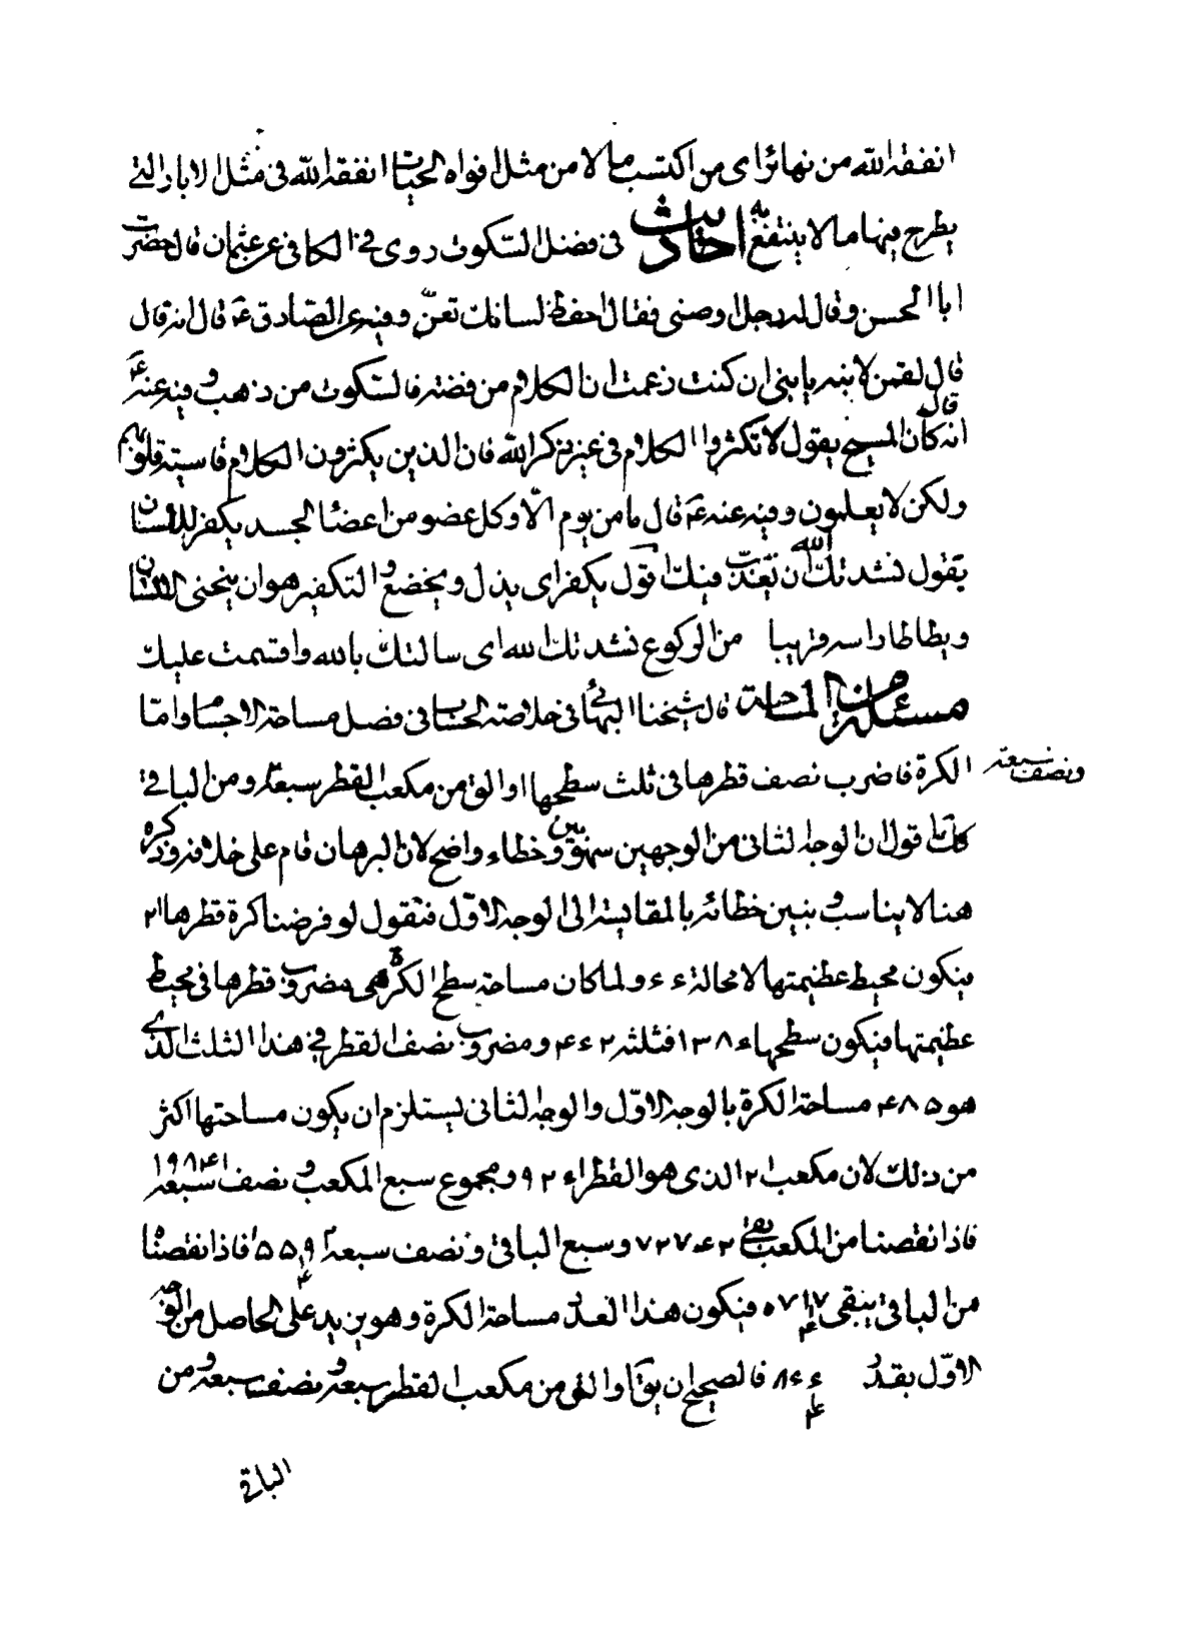 انفقه الله من نهابر ای من اکتسب مالا من مثل افواه الحیات انفقه الله فی مثل الابار التی
یطرح فیها ما لا ینتفع به احادیث فی فضل السکوت روی فی الکافی عن عثمان قال حضرت
ابا الحسن وقال له رجل اوصنی فقال احفظ لسانک تعزّ وفیه عن الصّادق ع قال انه قال
قال لقمن لابنه یا بنی ان کنت زعمت ان الکلام من فضة فالسکوت من ذهب وفیه عنه ع
انه قال کان المسیح یقول لا تکثروا الکلام فی غیر ذکر الله فان الذین یکثرون الکلام قاسیة قلوبهم
ولکن لا یعلمون وفیه عنه ع قال ما من یوم الّا وکل عضو من اعضا الجسد یکفر اللسان
یقول نشدتک الله ان نعذّب فیک اقول یکفر ای یذل ویخضع والتکفیر هو ان ینحنی الانسان
ویطاطا راسه قریبا من الرکوع نشدتک الله ای سالتک بالله واقسمت علیک
مسئلة من المساحة قال شیخنا البهائی فی خلاصة الحساب فی فصل مساحة الاجسام واما
الکرة فاضرب نصف قطرها فی ثلث سطحها او الق من مکعب القطر سبعه ومن الباقی
ونصف سبعه
کک اقول ان الوجه الثانی من الوجهین سهو بین وخطاء واضح لان البرهان قام علی خلافه وذکره
هنا لا یناسب و نبین خطائه بالمقایسة الی الوجه الاوّل فنقول لو فرضنا کرة قطرها ۲۱
فیکون محیط عظیمتها لا محالة ۶۶ ولما کان مساحة سطح الکرة هی مضروب قطرها فی محیط
عظیمتها فیکون سطحها ۱۳۸۶ فثلثه ۴۶۲ ومضروب نصف القطر فی هذا الثلث الذی
هو ۴۸۵۱ مساحة الکرة بالوجه الاوّل والوجه الثانی یستلزم ان یکون مساحتها اکثر
من ذلک لان مکعب ۲۱ الذی هو القطر ۹۲۶۱ ومجموع سبع المکعب و نصف سبعه ۱۹۸۴
فاذا نقصنا من المکعب بقی ۷۲۷۶ وسبع الباقی ونصف سبعه ۱۵۵۹ فاذا نقصناه
من الباقی یبقی ۵۷۱۷ فیکون هذا العدد مساحة الکرة وهو یزید علی الحاصل من الوجه
الاوّل بقدر ۸۶۶ فالصحیح ان یقا والق من مکعب القطر سبعه ونصف سبعه ومن
الباقی